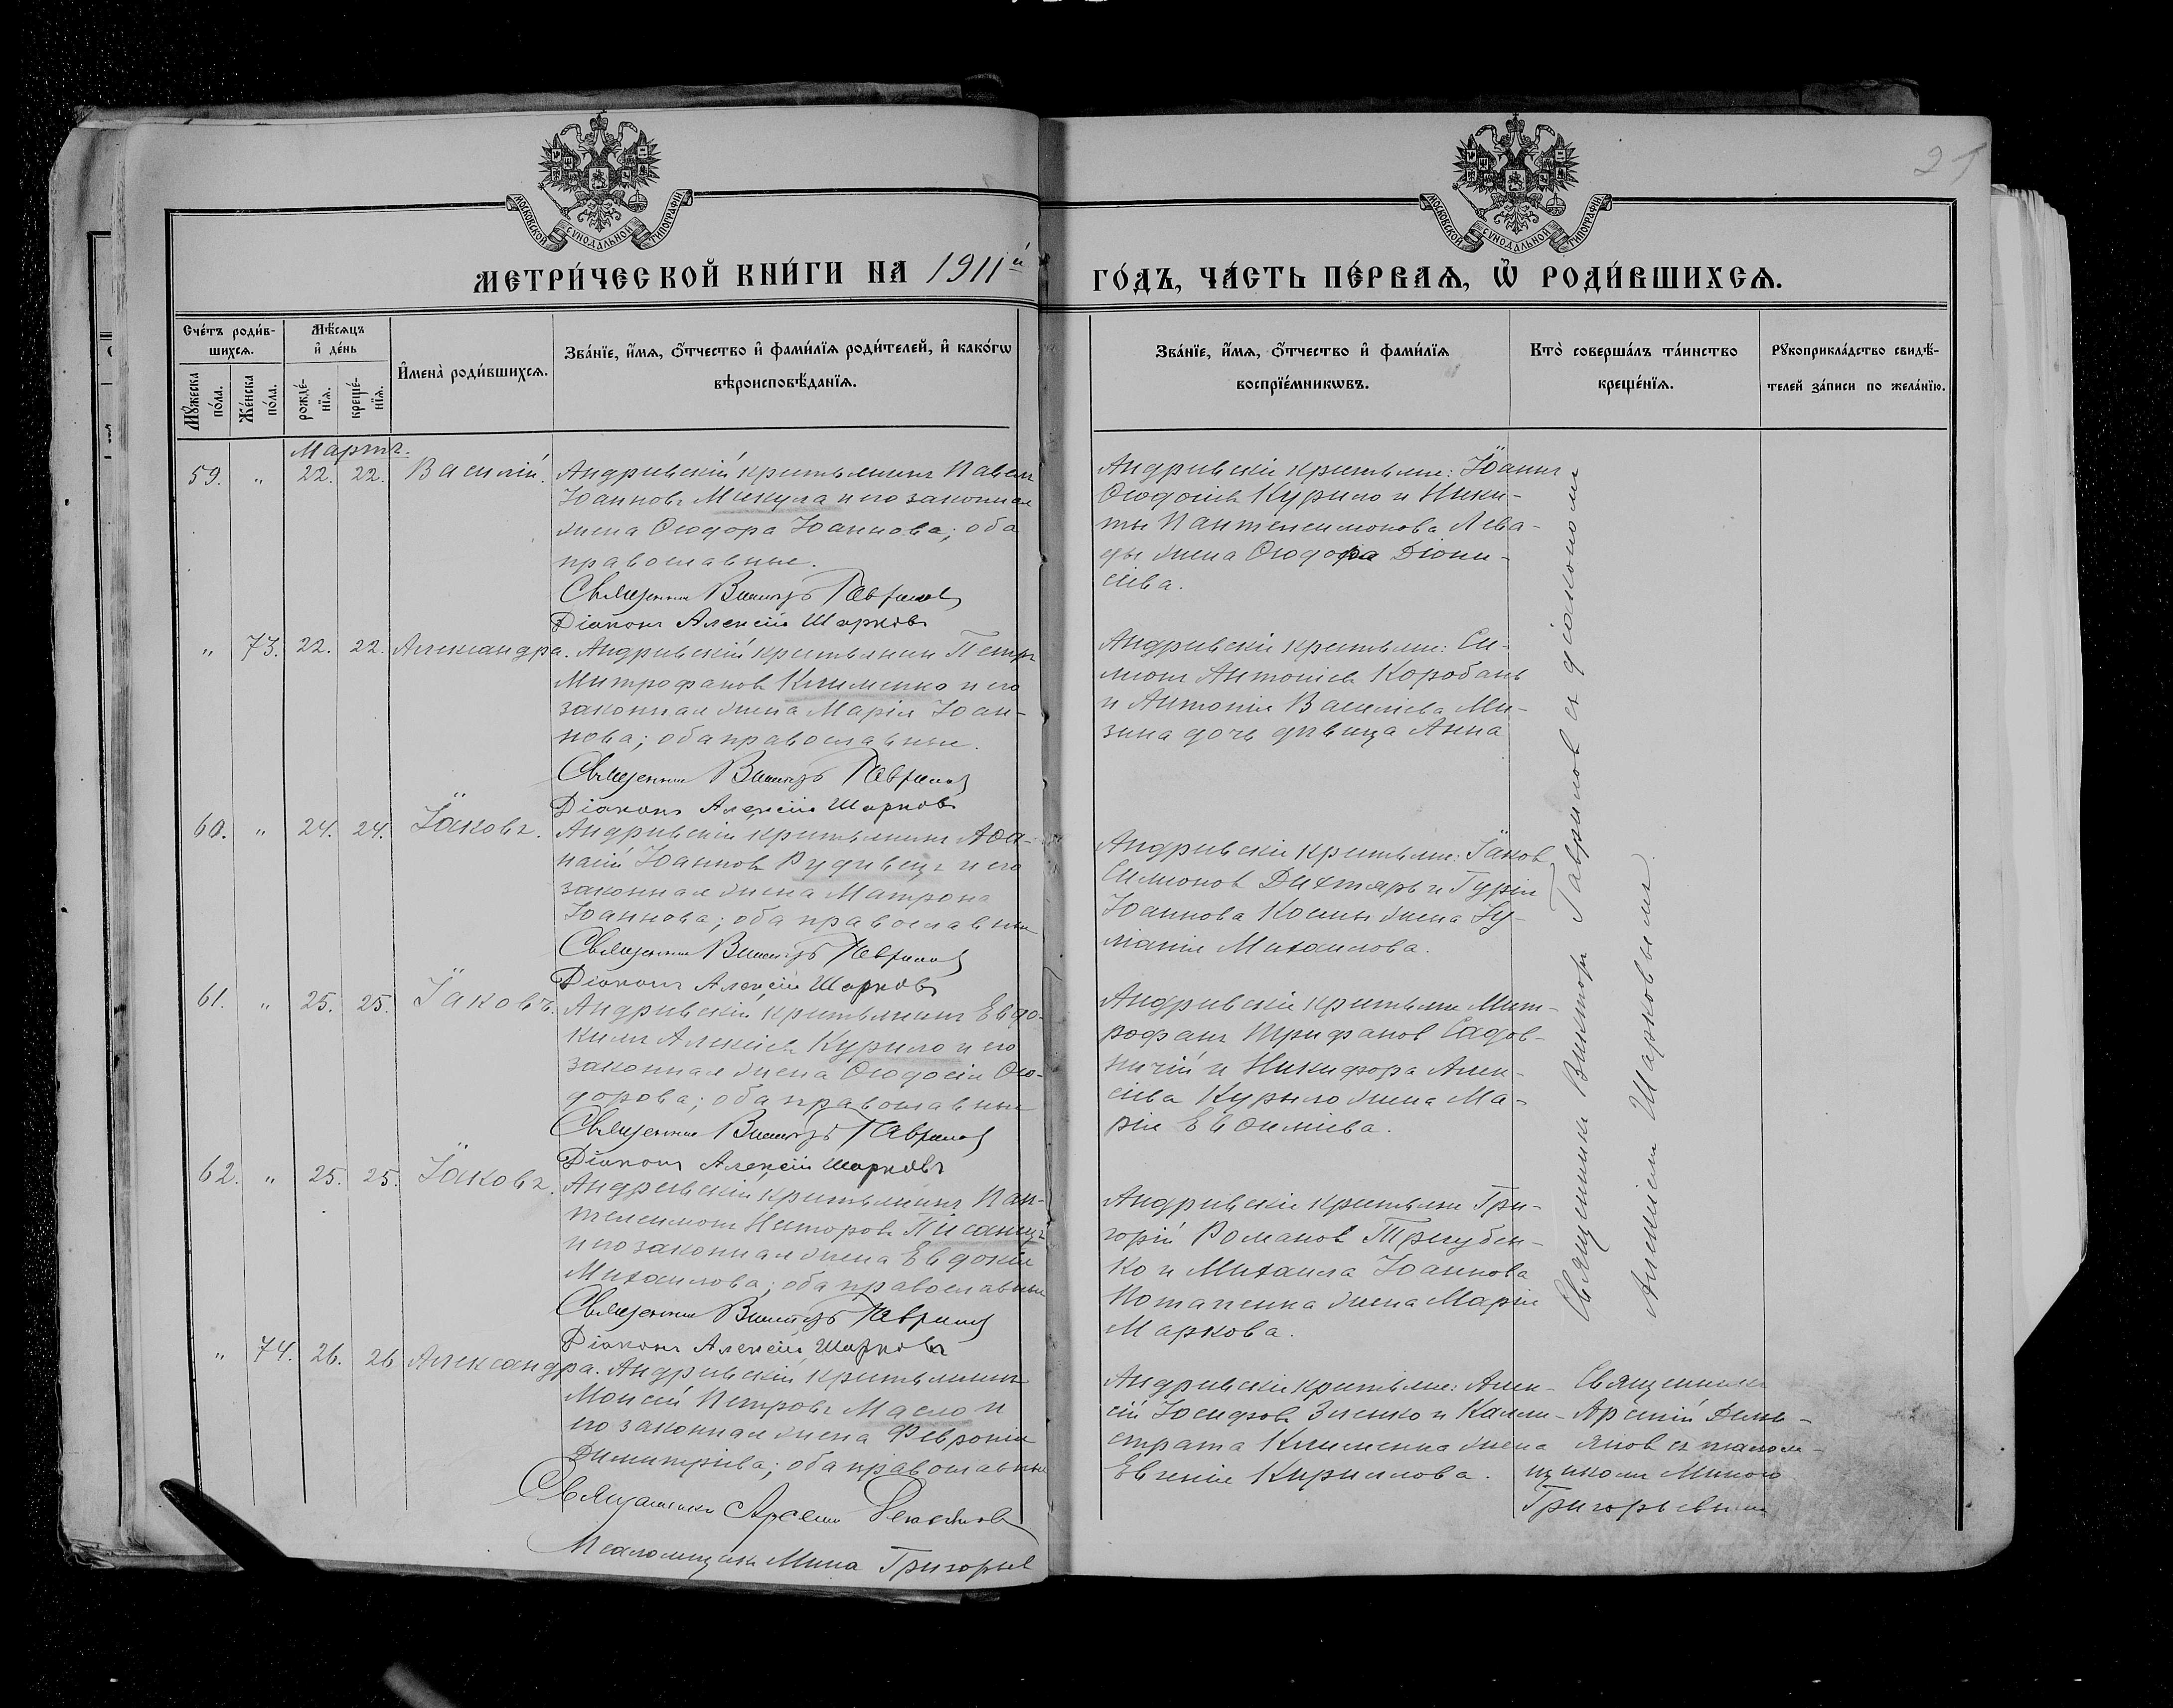 21
МОСКОВСКОЙ СУНОДАЛЬНОЙ ТИПОГРАФІИ
МОСКОВСКОЙ СУНОДАЛЬНОЙ ТИПОГРАФІИ
МЕТРИ́ЧЕСКОЙ КНИ́ГИ НА 1911й ГО́ДЪ, ЧА́СТЬ ПЕ́РВАѦ, Ѽ РОДИ́ВШИХСѦ.
Сче́тъ роди́в-
шихсѧ.
Мꙋ́жеска по́ла.
Же́нска по́ла.
Мѣ́сѧцъ
и҆ де́нь
рожде́-
нїѧ.
креще́-
нїѧ.
И҆мена̀ роди́вшихсѧ.
Зва́нїе, и҆́мѧ, ѻ҆́тчество и҆ фами́лїѧ роди́телей, и҆ како́гѡ
вѣроисповѣ́данїѧ.
Зва́нїе, и҆́мѧ, ѻ҆́тчество и҆ фами́лїѧ
воспрїе́мникѡвъ.
Кто̀ соверша́лъ та́инство
креще́нїѧ.
Рꙋкоприкла́дство свидѣ́-
телей за́писи по жела́нїю.
Мартъ.
59. " 22. 22. Василій. Андріевскій крестьянинъ Павелъ
Іоанновъ Микула и его законная
жена Ѳеодора Іоаннова; оба
православные.
Священникъ Викторъ Гавриловъ
Діаконъ Алексій Шарковъ
Андріевскіе крестьяне: Іоаннъ
Ѳеодосіевъ Курило и Ники-
ты Пантелеимонова Лева-
ды жена Ѳеодора Діони-
сіева.
" 73. 22. 22. Александра. Андріевскій крестьянинъ Петръ
Митрофановъ Клименко и его
законная жена Марія Іоан-
нова; оба православные.
Священникъ Викторъ Гавриловъ
Діаконъ Алексій Шарковъ
Андріевскіе крестьяне: Си-
меонъ Антоніевъ Коробань
и Антонія Василіева Ми-
зина дочь дѣвица Анна
60. " 24. 24. Іаковъ. Андріевскій крестьянинъ Аѳа-
насій Іоанновъ Рудивецъ и его
законная жена Матрона
Іоаннова; оба православные
Священникъ Викторъ Гавриловъ
Діаконъ Алексій Шарковъ
Андріевскіе крестьяне: Іаковъ
Симеоновъ Дихтярь и Гурія
Іоаннова жена Іу-
ліанія Михаилова.
61. " 25. 25. Іаковъ. Андріевскій крестьянинъ Евдо-
кимъ Алексіевъ Курило и его
законная жена Ѳеодосія Ѳео-
дорова; оба православные
Священникъ Викторъ Гавриловъ
Діаконъ Алексій Шарковъ
Андріевскіе крестьяне Мит-
рофанъ Трифоновъ Садов-
ничій и Никифора Алек-
сіева Курыло жена Ма-
рія Евѳиміева.
62. " 25. 25. Іаковъ. Андріевскій крестьянинъ Пан-
телеимонъ Несторовъ Писанецъ
и его законная жена Евдокія
Михаилова; оба православные
Священникъ Викторъ Гавриловъ
Діаконъ Алексій Шарковъ
Андріевскіе крестьяне Гри-
горій Романовъ Тригубен-
ко и Михаила Іоаннова
Потапенка жена Марія
Маркова.
Священникъ Викторъ Гавриловъ съ діакономъ
Алексіемъ Шарковымъ.
" 74. 26. 26 Александра. Андріевскій крестьянинъ
Моисей Петровъ Масло и
его законная жена Февронія
Димитріева; оба православные
Священникъ Арсеній
Псаломщикъ Мина Григорьев
Андріевскіе крестьяне: Алек-
сій Іосифовъ Зленко и Калли-
страта Клименка жена
Евгенія Кириллова.
Священникъ
Арсеній
съ псалом-
щикомъ Миною
Григорьевымъ